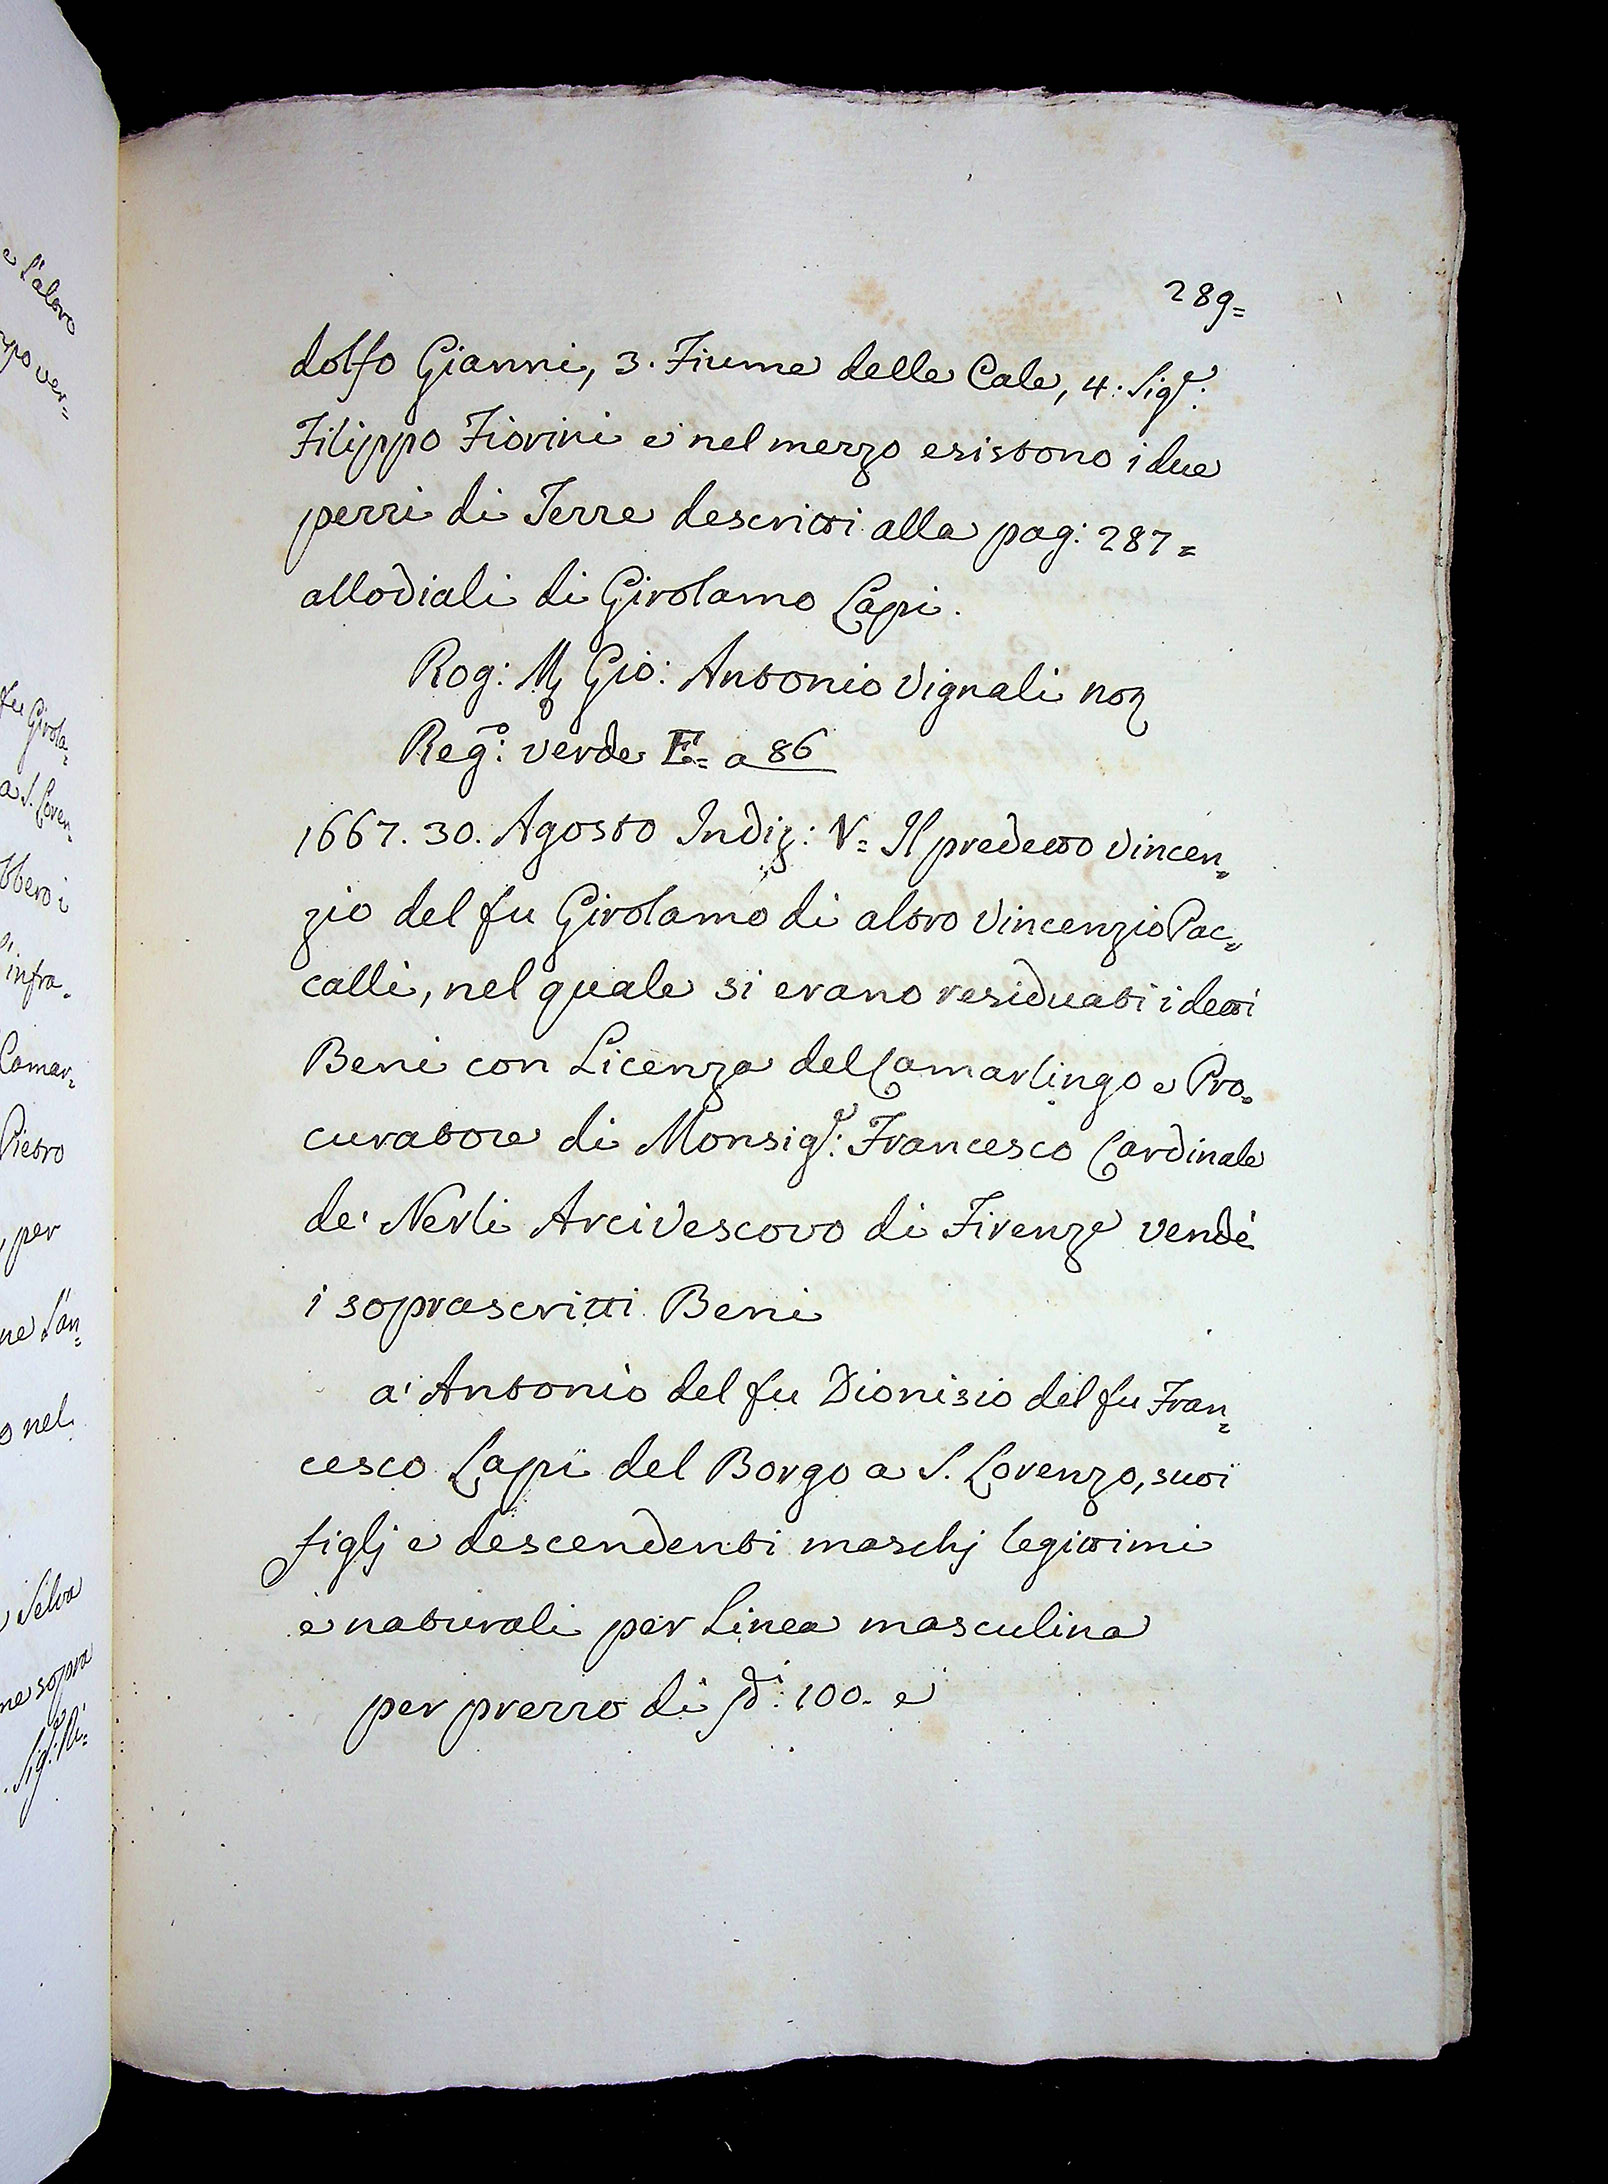 289=
dolfo Gianni, 3. Fiume delle Cale, 4. Sigr:
Filippo Fiorini e nel mezzo esistono i due
pezzi di Terre descritti alla pag: 287=
allodiali di Girolamo Lapi.
Rog: Gio: Antonio Vignali
Rego: verde E= a 86
1667. 30. Agosto Indiz: V= Il predetto Vincen=
zio del fu Girolamo di altro Vincenzio Pac=
calli, nel quale si erano residuati i detti
Beni con Licenza del Camarlingo e Pro=
curatore di Monsigr: Francesco Cardinale
de' Nerli Arcivescovo di Firenze vendè
i soprascritti Beni
a' Antonio del fu Dionisio del fu Fran=
cesco Lapi del Borgo a S. Lorenzo, suoi
figlj e descendenti maschj legittimi
e naturali per Linea masculina
per prezzo di 100. e
e l'altro
mpo ver=
fu Girola=
a S. Loren=
bbero i
infra=
Camar=
Pietro
per
ne l'an=
o nel
Selva
me sopra
Sigr: Ri=